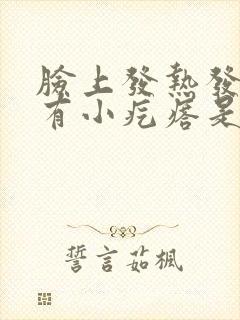 臉上發熱發
有小疙瘩是
誓言茹楓